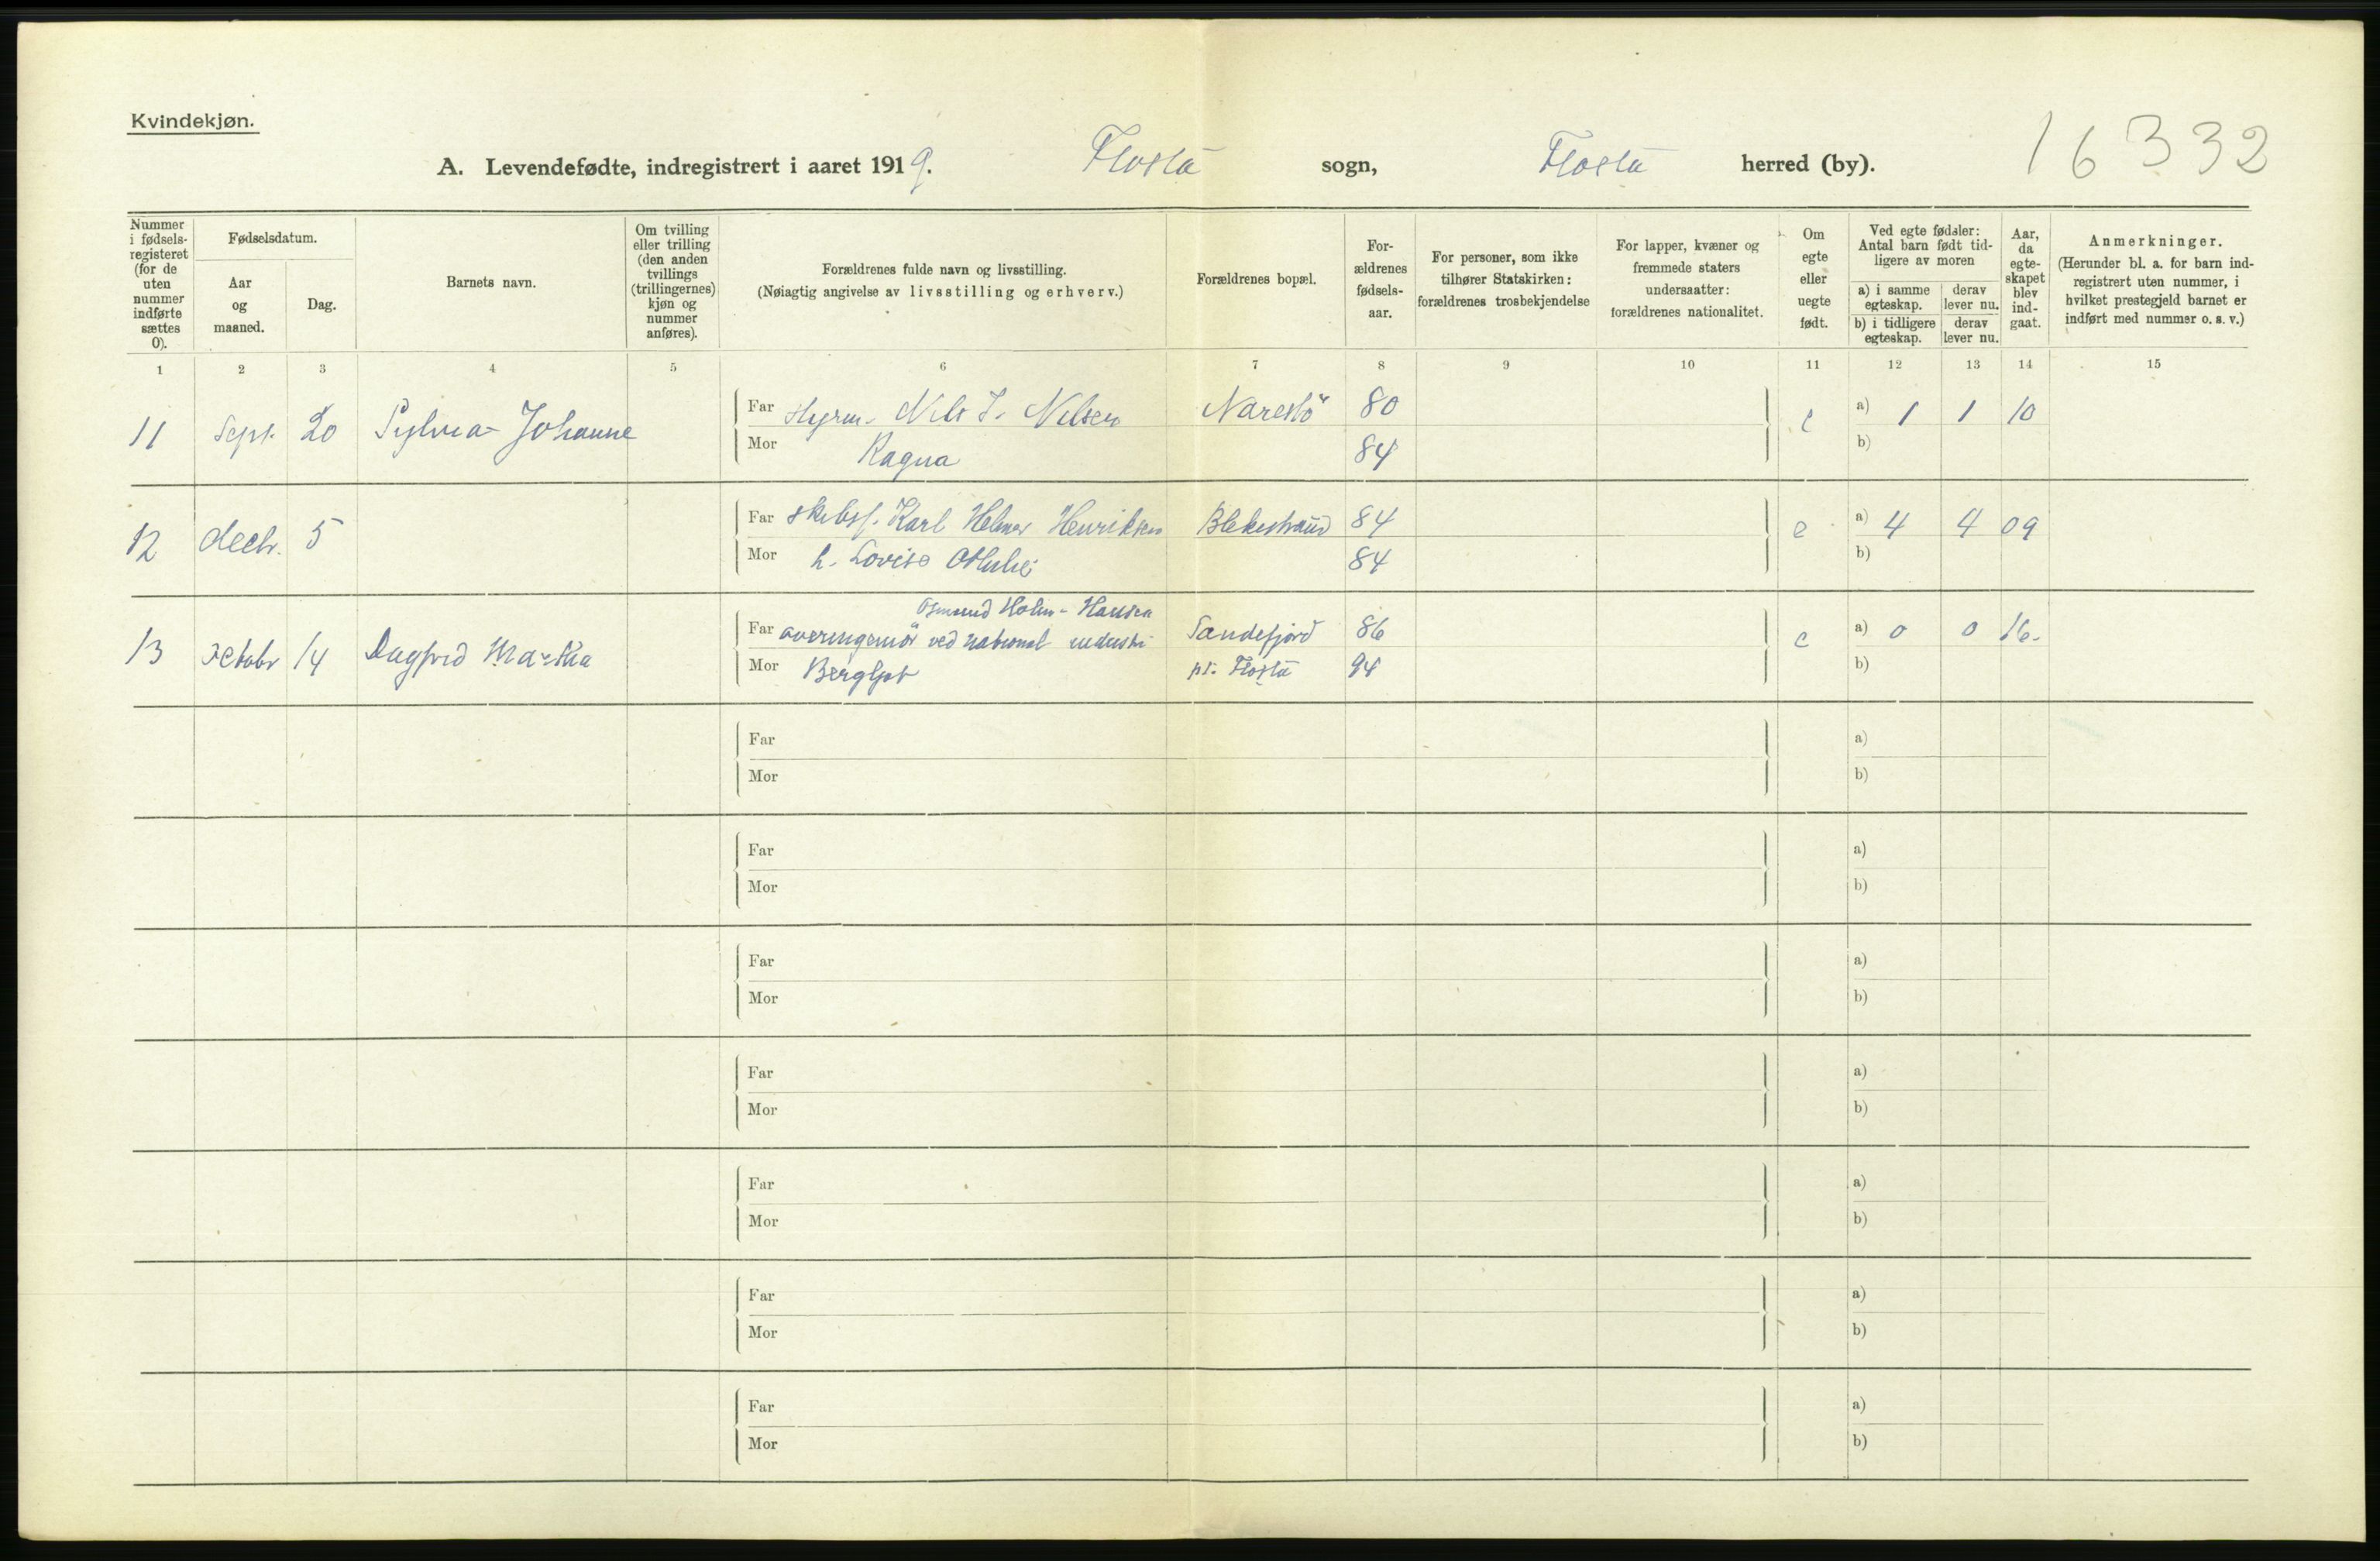 Kvindekjøn.
A. Levendefødte, indregistrert i aaret 1919. Flosta sogn, Flosta herred (by). 16332
Nummer i fødsels-registeret (for de uten nummer indførte sættes 0).
Fødselsdatum.
Aar og maaned.
Dag.
Barnets navn.
Om tvilling eller trilling (den anden tvillings (trillingernes) kjøn og nummer anføres).
Forældrenes fulde navn og livsstilling.
(Nøiagtig angivelse av livsstilling og erhverv.)
Forældrenes bopæl.
For-ældrenes fødsels-aar.
For personer, som ikke tilhører Statskirken: forældrenes trosbekjendelse
For lapper, kvæner og fremmede staters undersaatter: forældrenes nationalitet.
Om egte eller uegte født.
Ved egte fødsler: Antal barn født tid-ligere av moren
a) i samme egteskap.
derav lever nu.
b) i tidligere egteskap.
derav lever nu.
Aar, da egte-skapet blev ind-gaat.
Anmerkninger.
(Herunder bl. a. for barn ind-registrert uten nummer, i hvilket prestegjeld barnet er indført med nummer o. s. v.)
1 2 3 4 5 6 7 8 9 10 11 12 13 14 15
11 Sept. 20 Sylvia Johanne Far Styrm. Nils J. Nilsen Narestö 80 e a) 1 1 10
Mor Ragna 84 b)
12 decbr. 5 Far Skibsf. Karl Helmer Henriksen Blekestrand 84 e a) 4 4 09
Mor h. Lovise 84 b)
Osmund Holm-Hansen
13 14 Dagfrid Martha Far ved national Sandefjord 86 e a) 0 0 16.
Mor Bergljot pt. Flosta 94 b)
Far a)
Mor b)
Far a)
Mor b)
Far a)
Mor b)
Far a)
Mor b)
Far a)
Mor b)
Far a)
Mor b)
Far a)
Mor b)